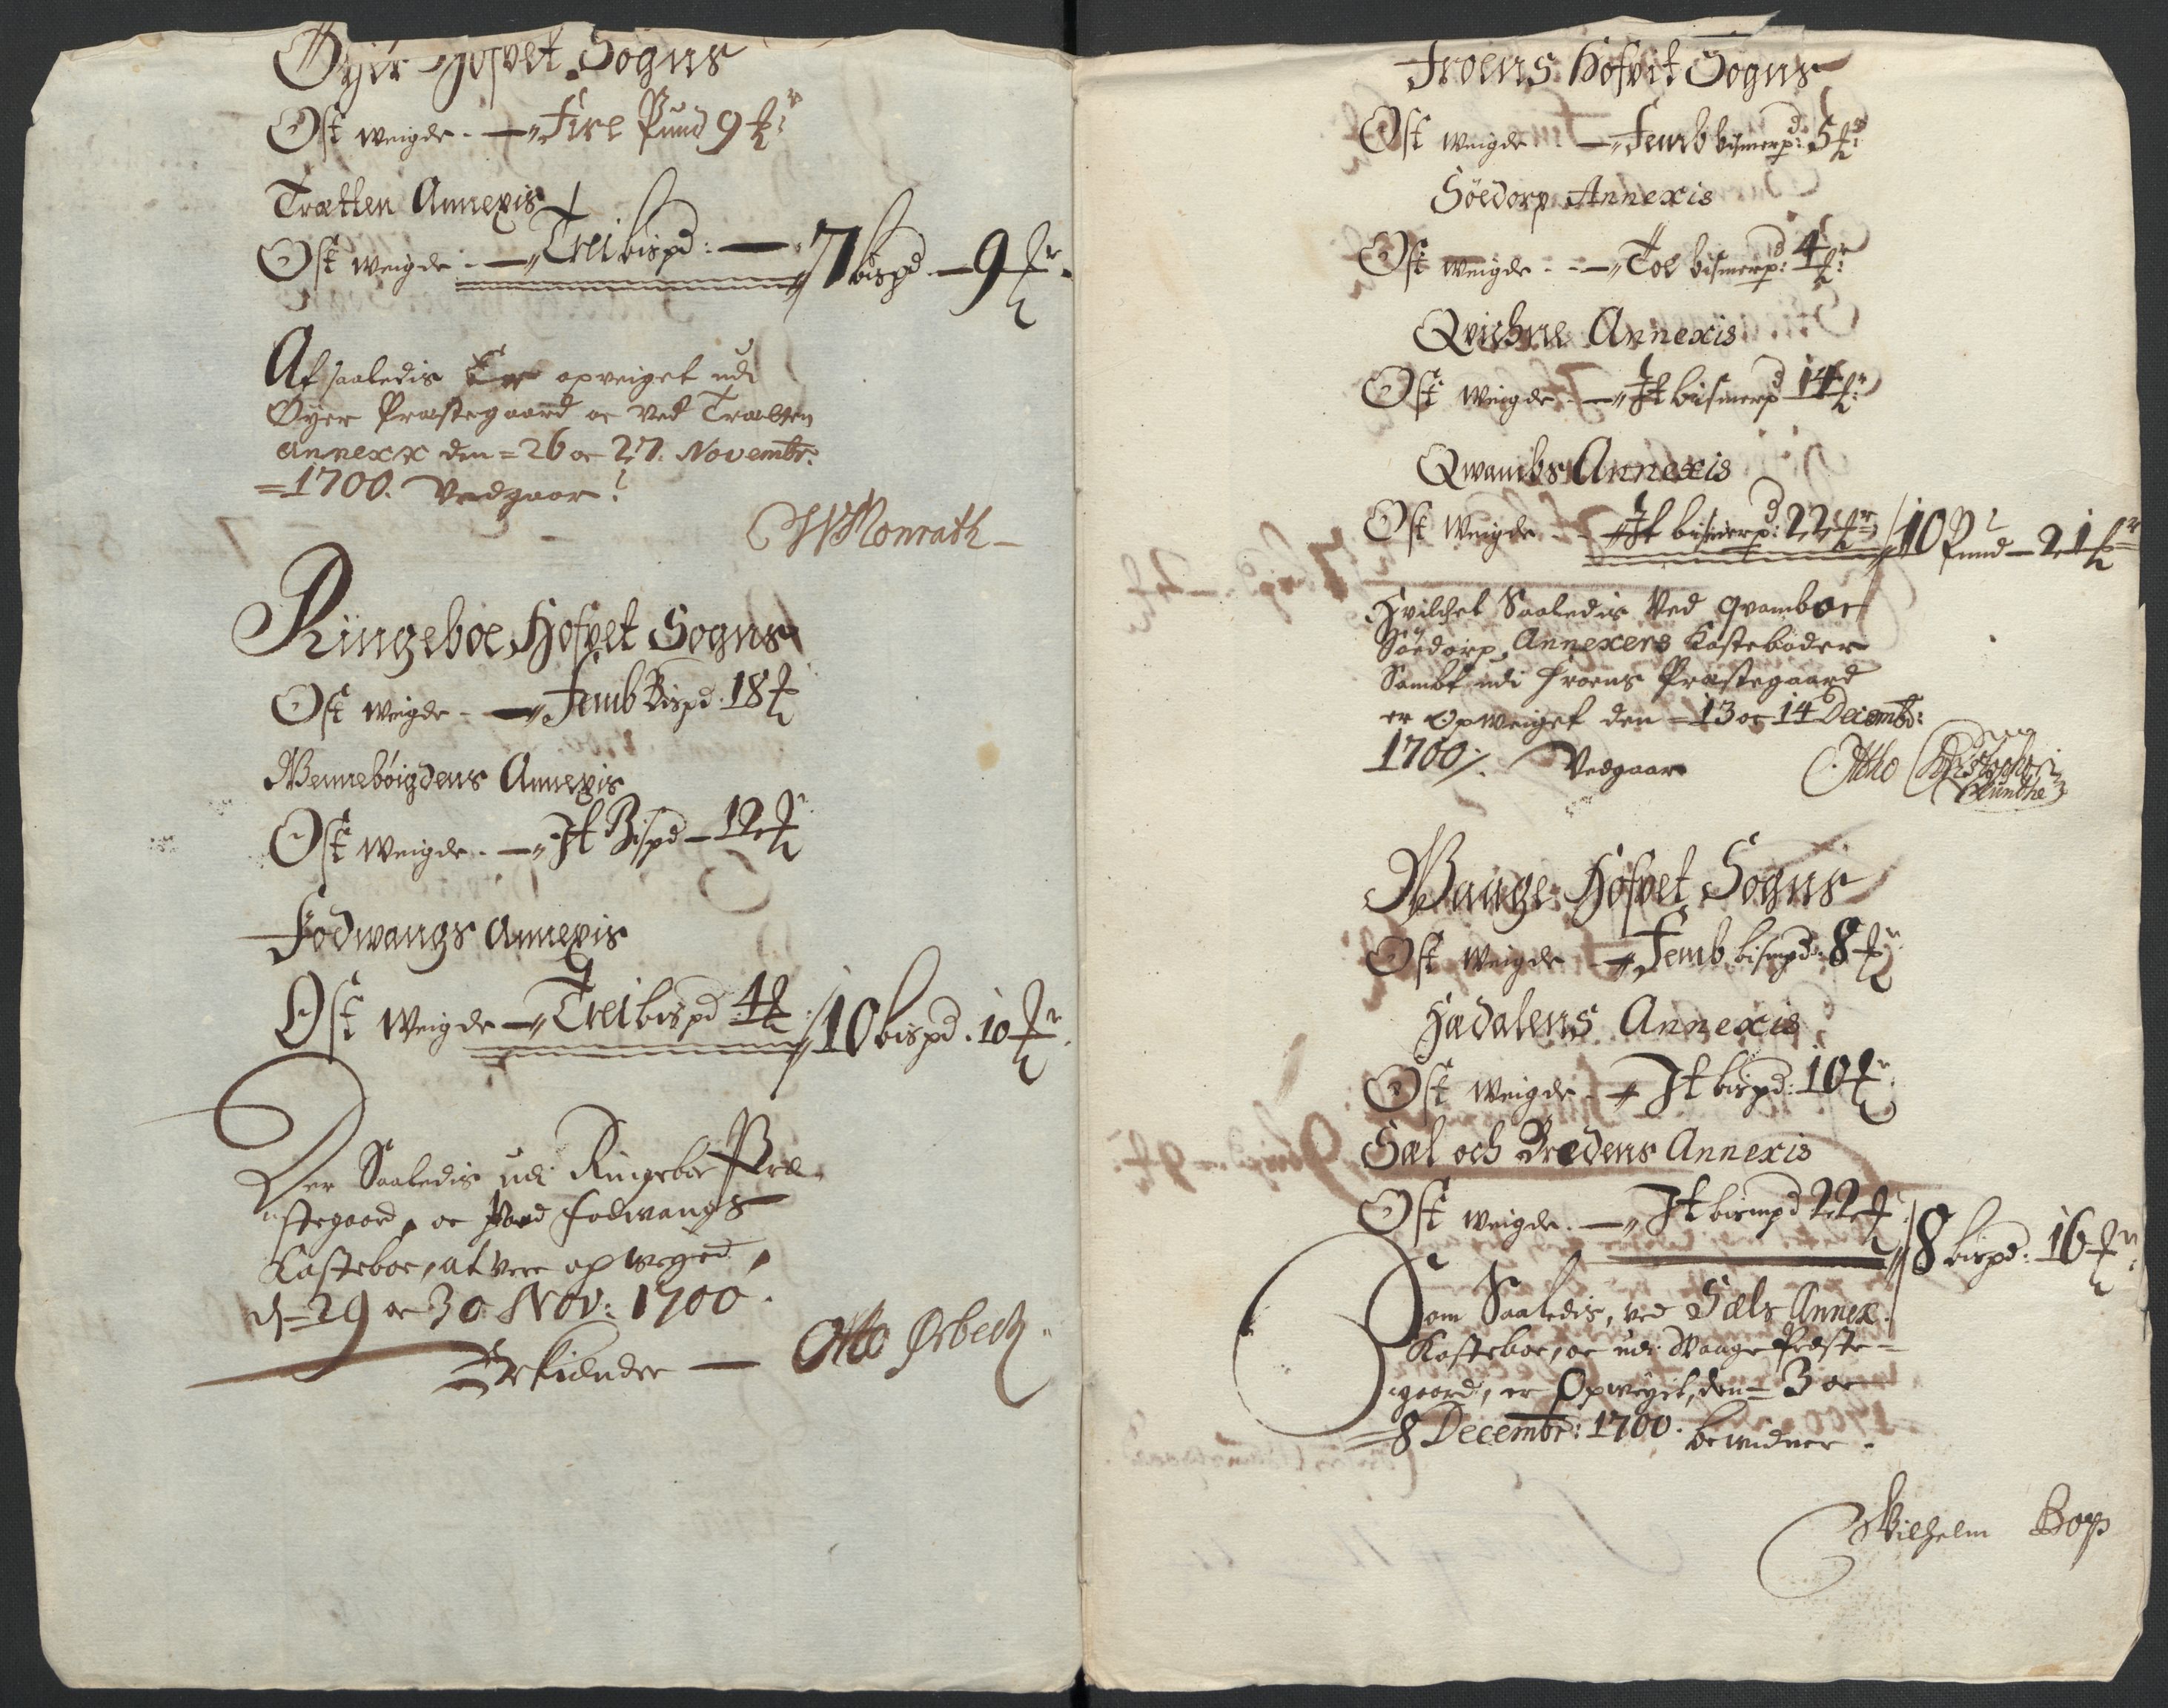 Øyer Hofvet Sogns
Ost weigde - — Fire Pund 9 ℔r
Trætten Annexis
Ost weigde - — Trei bispd: — 7 bispd — 9 ℔r
At saaledis Er opveiget udi
Øyer Præstegaard oc ved Trætten
Annexx den = 26 oc 27. Novembr.
= 1700. Vedgaar
Monrath
Ringeboe Hofvet Sogns
Ost weigde - — Femb Bispd. 18 ℔
Wennebøigdens Annexis
Ost weigde - — It Bispd — 12 ℔r
Fodwangs Annexis
Ost weigde — Trei bispd 4 ℔ 10 bispd. 10 ℔r
Der Saaledis udi Ringeboe Præ-
stegaard, oc ved Fodwangs
Kosteboe, at vere opweged,
d = 29 oc 30 Nov: 1700.
Bekiender — Otto Ørbech
Froens Hofvit Sogns
Ost weigde - — Femb bismerpd: 5 ℔r
Söedorp Annexis
Ost weigde - — Toe bismerpd: 4 ℔r
Qvichne Annexis
Ost weigde - — It bismerpd 14 ℔r
Qwambs Annexis
Ost weigde - — It bismerpd: 22 ℔r 10 Pund — 21 ℔r
Hvilchet Saaledis Ved qvamb oc
Söedorp Annexers Kosteboder
Sambt udi Froens Præstegaard
er Opweiget den = 13 oc 14 Decembr:
1700 /. Vedgaar Otto Christophersen
Munthe
Waage Hofvet Sogns
Ost weigde - Femb bismpd: 8 ℔r
Hædalens Annexis
Ost weigde - It bispd: 10 ℔r
Sæl och Brædens Annexis
Ost weigde. — It bismpd 22 ℔ 8 bispd: 16 ℔r
Som Saaledis, ved Sæls Annex
Kosteboe, oc udi Waage Præste=
gaard, er Opweyet, den = 3 oc
= 8 Decembr: 1700. bewidner.
Wilhelm Bop